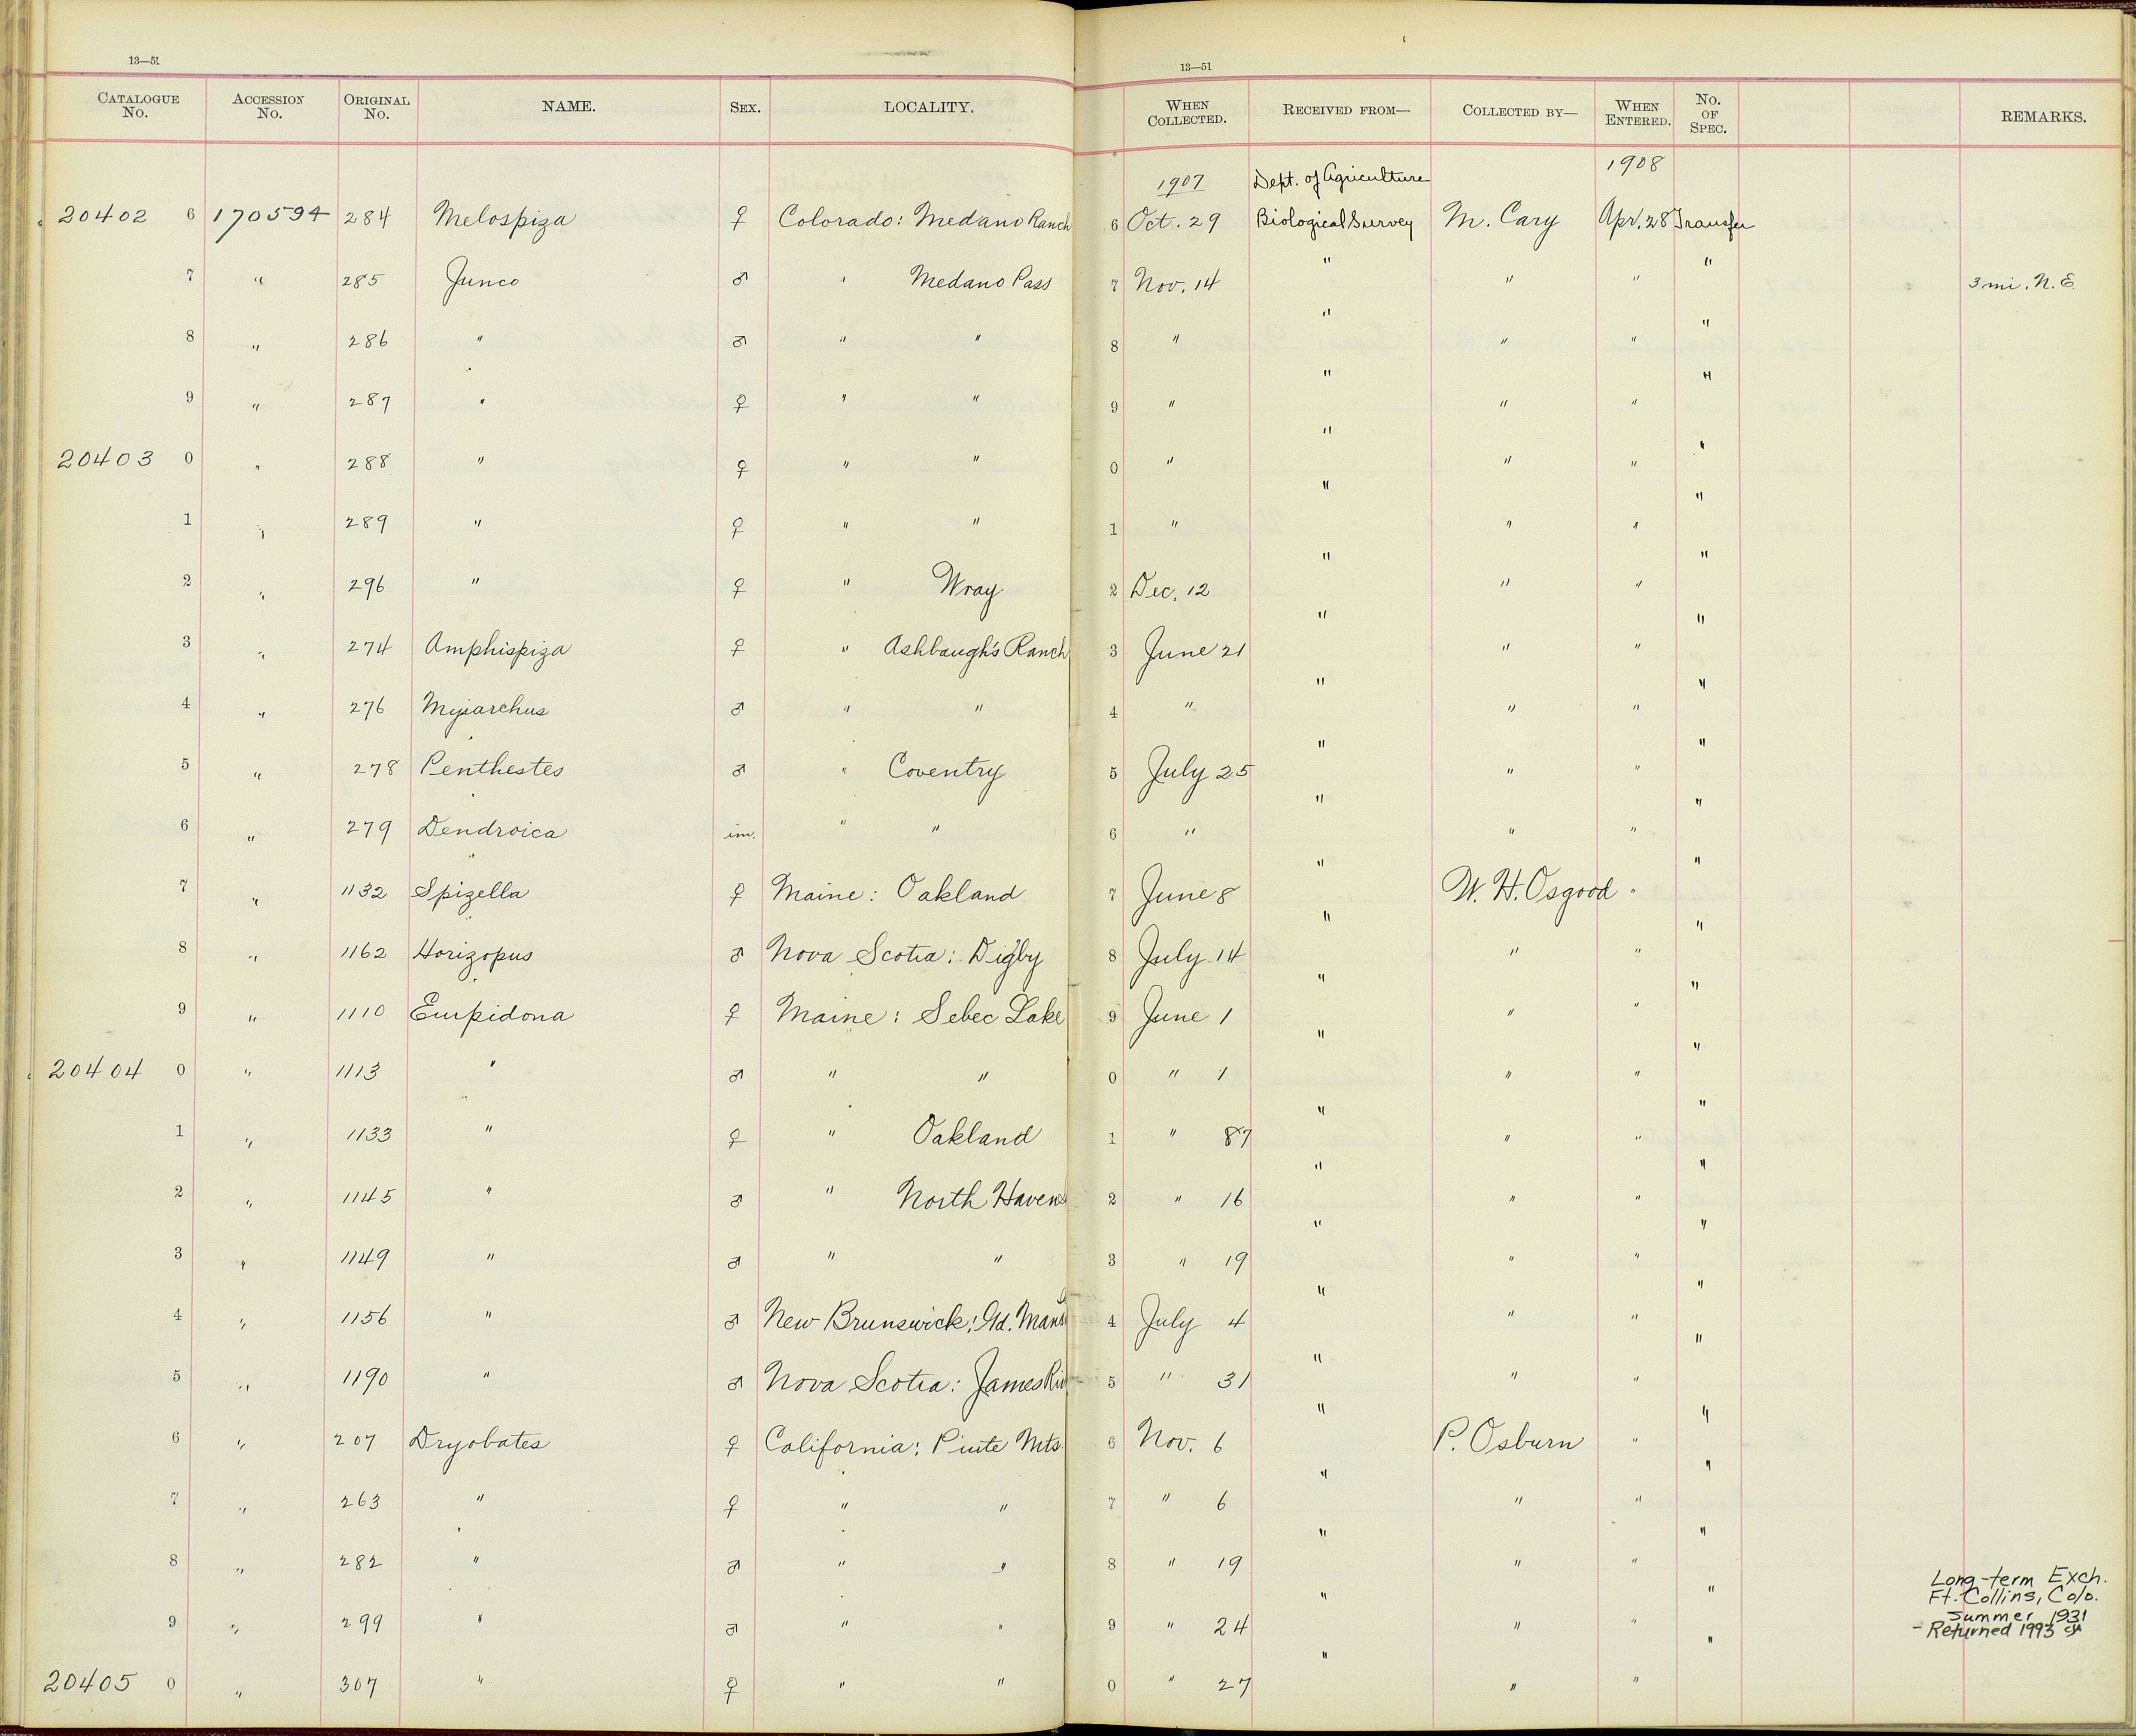 13—51
13—51
CATALOGUE No. ACCESSION No. ORIGINAL No. NAME. SEX. LOCALITY. WHEN COLLECTED. RECEIVED FROM— COLLECTED BY— WHEN ENTERED. No. OF SPEC. REMARKS.
1907 Dept. of Agriculture 1908
20402 6 170594 284 Melospiza ♀ Colorado: Medano Ranch 6 Oct. 29 Biological Survey M. Cary Apr. 28 Transfer
7 " 285 Junco ♂ " Medano Pass 7 Nov. 14 " " " " 3 mi. N. E.
8 " 286 " ♂ " " 8 " " " " "
9 " 287 " ♀ " " 9 " " " " "
20403 0 " 288 " ♀ " " 0 " " " " "
1 " 289 " ♀ " " 1 " " " " "
2 " 296 " ♀ " Wray 2 Dec. 12 " " " "
3 " 274 Amphispiza ♀ " Ashbaugh's Ranch 3 June 21 " " " "
4 " 276 Myiarchus ♂ " " 4 " " " " "
5 " 278 Penthestes ♂ " Coventry 5 July 25 " " " "
6 " 279 Dendroica im. " " 6 " " " " "
7 " 1132 Spizella ♀ Maine: Oakland 7 June 8 " W. H. Osgood " "
8 " 1162 Horizopus ♂ Nova Scotia: Digby 8 July 14 " " " "
9 " 1110 Empidona ♀ Maine: Sebec Lake 9 June 1 " " " "
20404 0 " 1113 " ♂ " " 0 " 1 " " " "
1 " 1133 " ♀ " Oakland 1 " 87 " " " "
2 " 1145 " ♂ " North Haven 2 " 16 " " " "
3 " 1149 " ♂ " " 3 " 19 " " " "
4 " 1156 " ♂ New Brunswick: Gd. 4 July 4 " " " "
5 " 1190 " ♂ Nova Scotia: James Riv 5 " 31 " " " "
6 " 207 Dryobates ♀ California: Piute Mts. 6 Nov. 6 " P. Osburn " "
7 " 263 " ♀ " " 7 " 6 " " " "
8 " 282 " ♂ " " 8 " 19 " " " "
Long-term Exch.
Ft. Collins, Colo.
Summer 1931
- Returned 1993
9 " 299 " ♂ " " 9 " 24 " " " "
20405 0 " 307 " ♀ " " 0 " 27 " " "